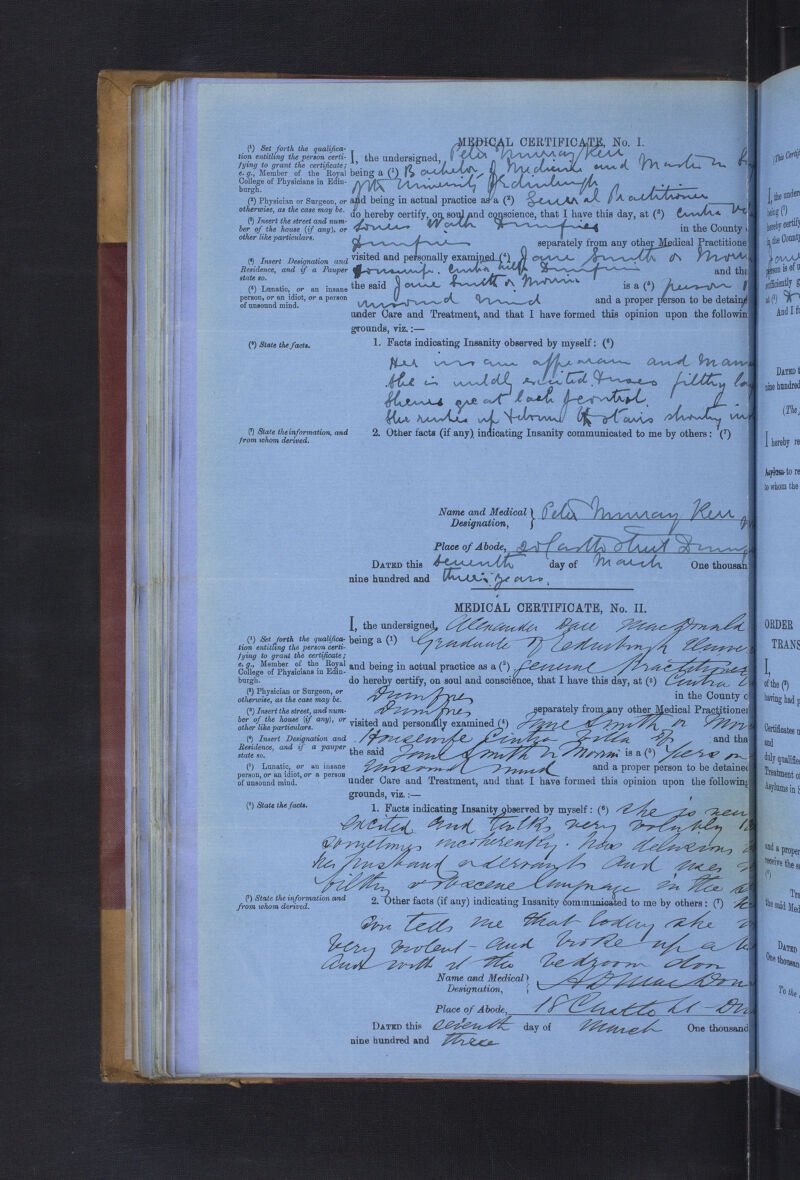 MEDICAL CERTIFICATE, No. I.
(1) Set forth the qualifica-
tion entitling the person certi-
fying to grant the certificate;
e. g., Member of the Royal
College of Physicians in Edin-
burgh.
(2) Physician or Surgeon, or
otherwise, as the case may be.
(3) Insert the street and num-
ber of the house (if any), or
other like particulars.
(4) Insert Designation and
Residence, and if a Pauper
state so.
(5) Lunatic, or an insane
person, or an idiot, or a person
of unsound mind.
(6) State the facts.
(7) State the information, and
from whom derived.
I, the undersigned, Peter Murray Kerr
being a (1) Bachelor of Medicine and Master in
of the University of Edinburgh
and being in actual practice as a (2) General Practitioner
do hereby certify, on soul and conscience, that I have this day, at (3) Cintra
Dumfries in the County
Dumfries separately from any other Medical Practitione
visited and personally examined (4) Jane Smith or
Housewife. Cintra Villa Dumfries and tha
the said Jane Smith or Morrin is a (5) person
unsound mind and a proper person to be detain
under Care and Treatment, and that I have formed this opinion upon the followin
grounds, viz.:—
1. Facts indicating Insanity observed by myself: (6)
Her insane appearance and
She is wildly excited & uses filthy
Shews great lack of control.
She rushes up & down stairs shouting
2. Other facts (if any) indicating Insanity communicated to me by others: (7)
Name and Medical Designation, Peter Murray Kerr
Place of Abode, Castle Street
DATED this Seventh day of March One thousan
nine hundred and three years.
MEDICAL CERTIFICATE, No. II.
(1) Set forth the qualifica-
tion entitling the person certi-
fying to grant the certificate;
e. g., Member of the Royal
College of Physicians in Edin-
burgh.
(2) Physician or Surgeon, or
otherwise, as the case may be.
(3) Insert the street, and num-
ber of the house (if any), or
other like particulars.
(4) Insert Designation and
Residence, and if a pauper
state so.
(5) Lunatic, or an insane
person, or an idiot, or a person
of unsound mind.
(6) State the facts.
(7) State the information and
from whom derived.
I, the undersigned, Alexander MacDonald
being a (1) Graduate of Edinburgh
and being in actual practice as a (2) General Practitioner
do hereby certify, on soul and conscience, that I have this day, at (3) Cintra
Dumfries in the County o
Dumfries separately from any other Medical Practitioner
visited and personally examined (4) Jane Smith or
Housewife Cintra Villa and tha
the said Jane Smith or Morrin is a (5) person
unsound mind and a proper person to be detained
under Care and Treatment, and that I have formed this opinion upon the following
grounds, viz.:—
1. Facts indicating Insanity observed by myself: (6) She is
excited and talks very volubly
sometimes incoherently. has delusions
her husband & servants and uses
filthy & obscene language in the
2. Other facts (if any) indicating Insanity communicated to me by others: (7)
Son tells me that today she
very violent and broke up a
and the bedroom door
Name and Medical Designation,
Place of Abode, 18 Castle St
DATED this seventh day of March One thousand
nine hundred and three
I, the under
being (1)
hereby certify
in the Count
person is of u
sufficiently g
at (3)
And I fu
DATED t
nine hundred
(The
I hereby re
Asylum to re
to whom the
ORDER
TRANS
I,
of the (2)
having had p
Certificates o
and
duly qualifie
Treatment o
Asylums in S
and a proper
receive the s
the said Med
DATED
One thousan
To the